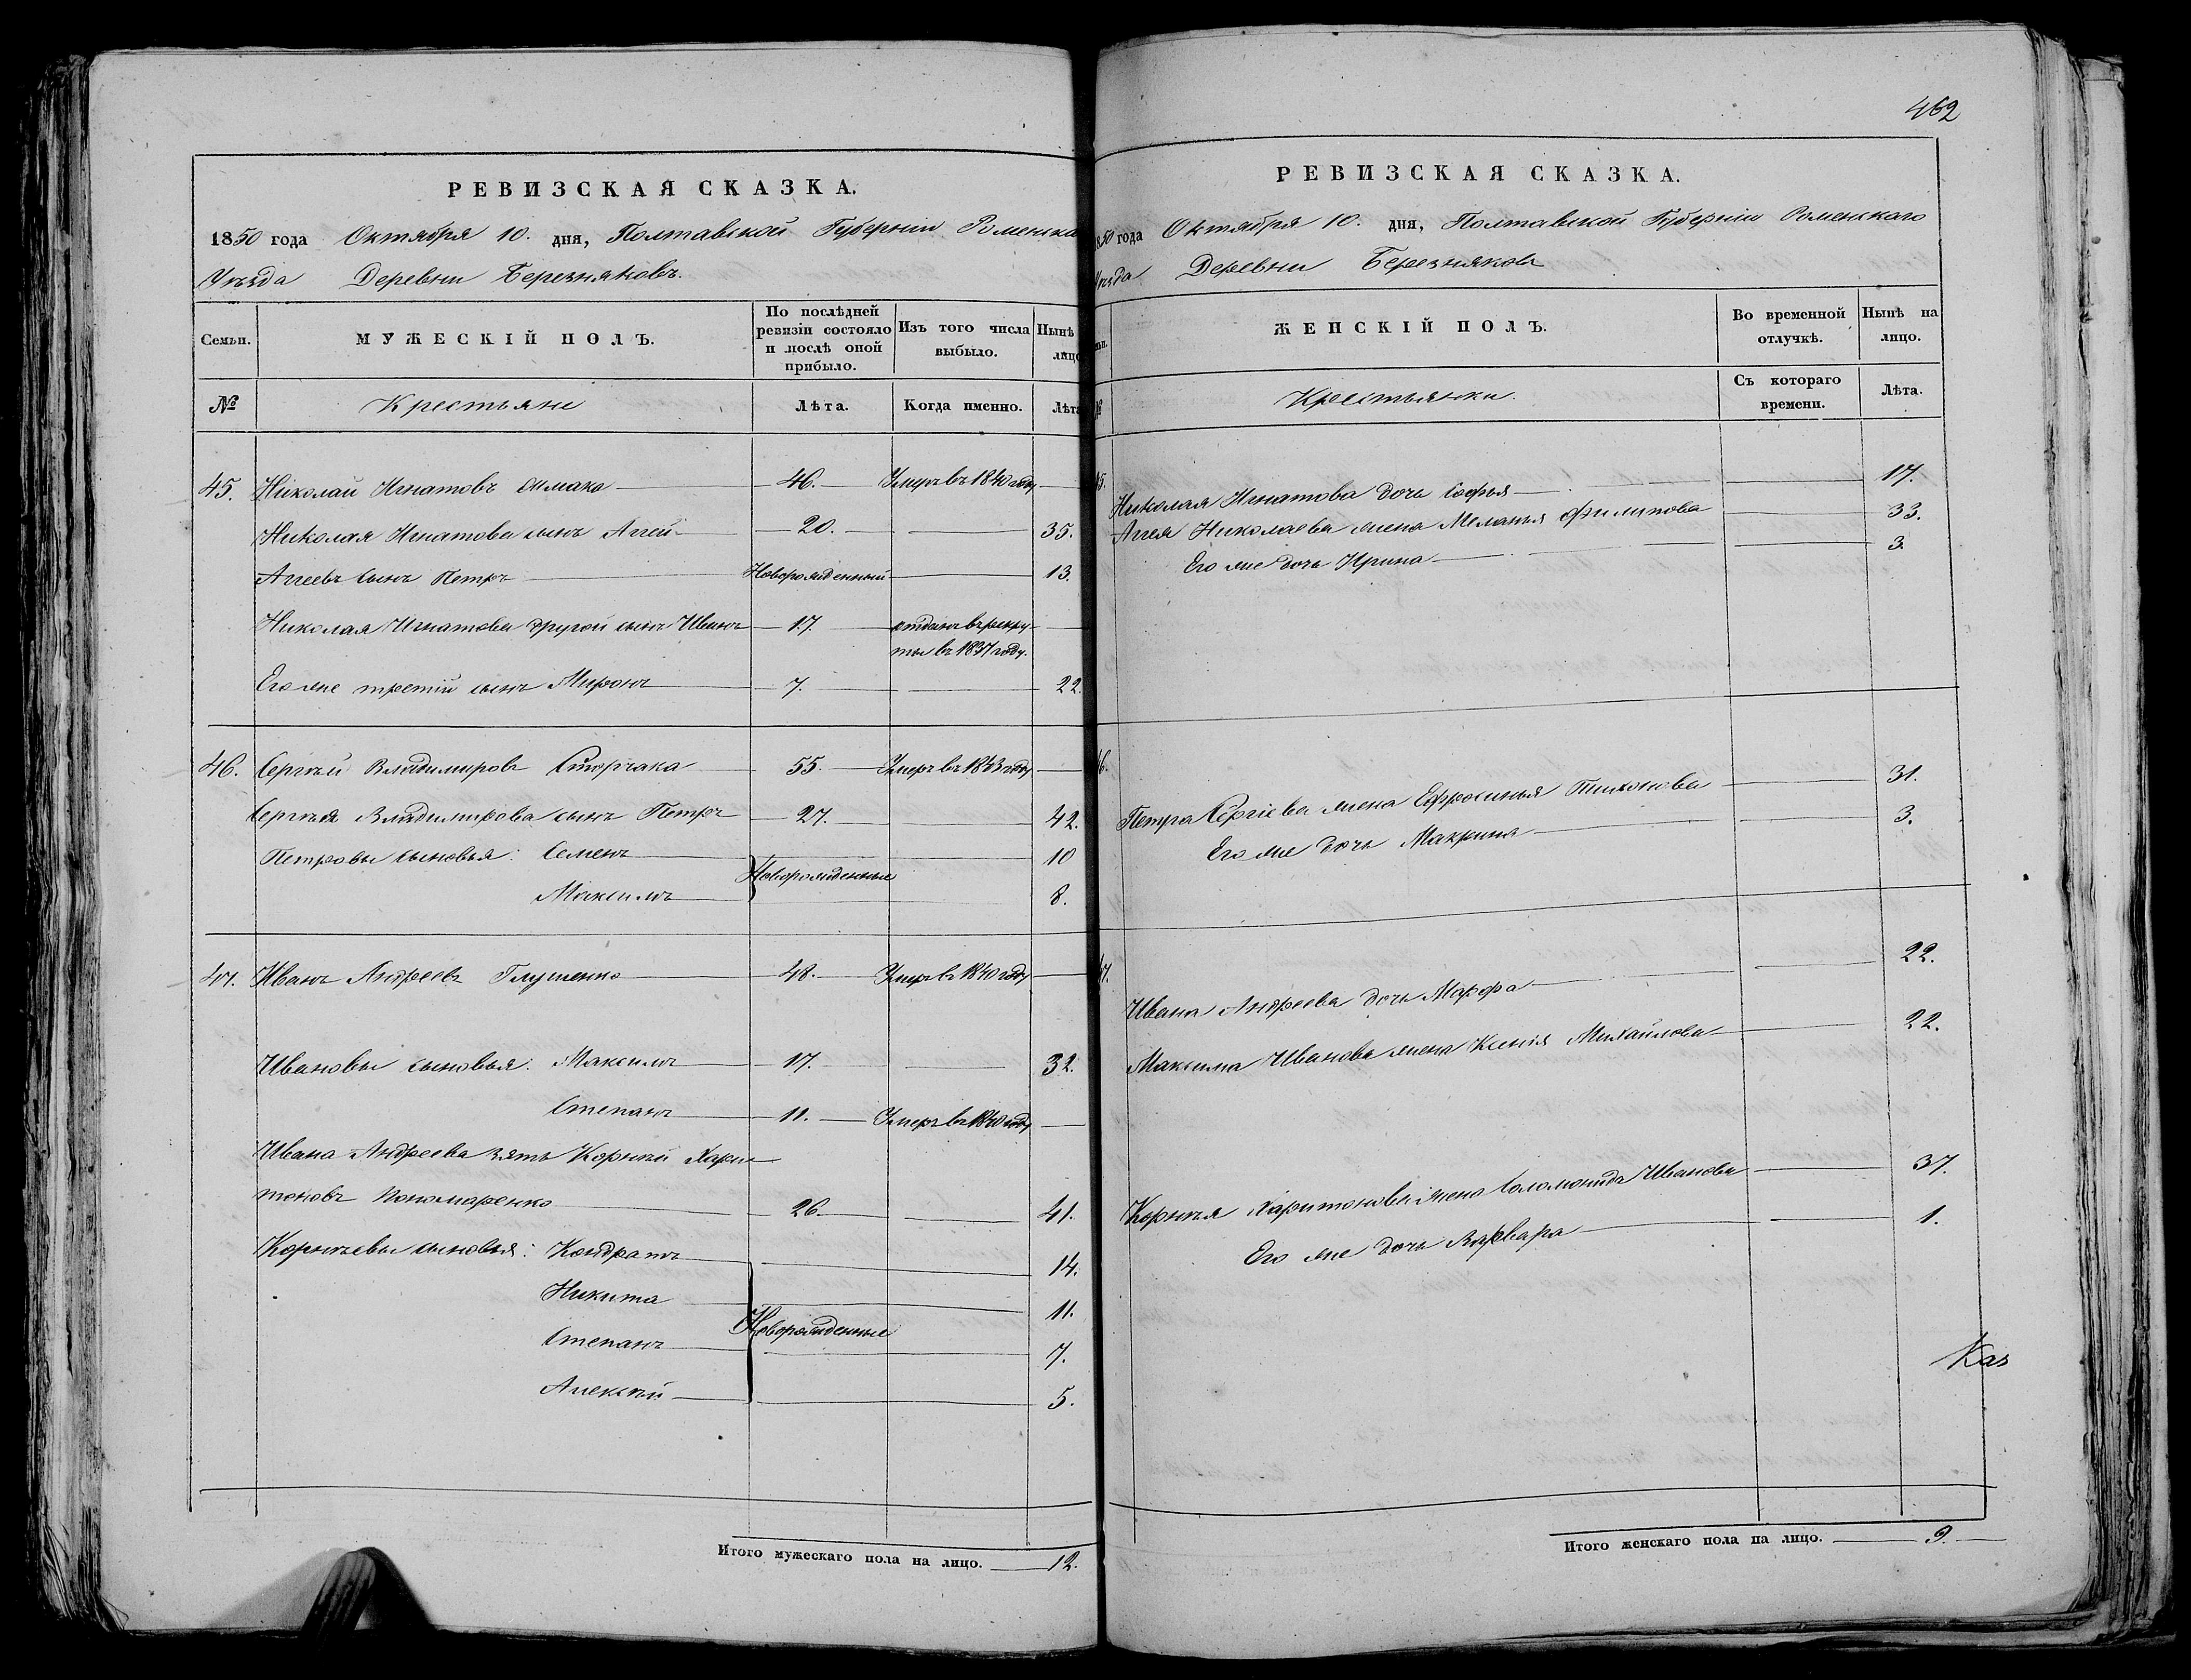 РЕВИЗСКАЯ СКАЗКА.
1850 года Октября 10. дня, Полтавской Губерніи Роменска
Уѣзда Деревни Березняковъ.
Семьи. МУЖЕСКІЙ ПОЛЪ. По послѣдней ревизіи состояло и послѣ оной прибыло. Изъ того числа выбыло. Нынѣ лицо
№ Крестьяне Лѣта. Когда именно. Лѣта
45. Николай Игнатовъ 46. Умеръ въ 1840 году
Николая Игнатова сынъ Аггей 20. 35.
Аггеевъ сынъ Петръ Новорожденный 13.
Николая Игнатова другой сынъ Иванъ 17. отданъ въ рекру-
ты въ 1837 году.
Его же третій сынъ Миронъ 7. 22.
46. Сергѣй Владимировъ Сторчака 55. Умеръ въ 1843 году
Сергѣя Владимирова сынъ Петръ 27. 42.
Петровы сыновья: Семенъ 10
Новорожденные
Максимъ 8.
47. Иванъ Андреевъ Глушенко 48. Умеръ въ 1840 году
Ивановы сыновья: Максимъ 17. 32.
Степанъ 11. Умеръ въ 1840 году
Ивана Андреева зять Корнѣй Хари-
тоновъ Пономаренко 26. 41.
Корнѣевы сыновья: Кондратъ 14.
Никита 11.
Новорожденные
Степанъ 7.
Алексѣй 5.
Итого мужескаго пола на лицо. 12.
462
РЕВИЗСКАЯ СКАЗКА.
850 года Октября 10. дня, Полтавской Губерніи Роменскаго
Уѣзда Деревни Березняковъ
ЖЕНСКІЙ ПОЛЪ. Во временной отлучкѣ. Нынѣ на лицо.
№ Крестьянки. Съ котораго времени. Лѣта.
5. Николая Игнатова дочь Софья 17.
Аггея Николаева жена Меланья Филипова 33.
Его же дочь Ирина 3.
6. Петра Сергіева жена Ефросинья Тихонова 31.
Его же дочь Макрина 3.
7. Ивана Андреева дочь Марфа 22.
Максима Иванова жена Ксенія Михайлова 22.
Корнѣя Харитонова жена Соломонида Иванова 37.
Его же дочь Варвара 1.
Каз
Итого женскаго пола на лицо. 9.